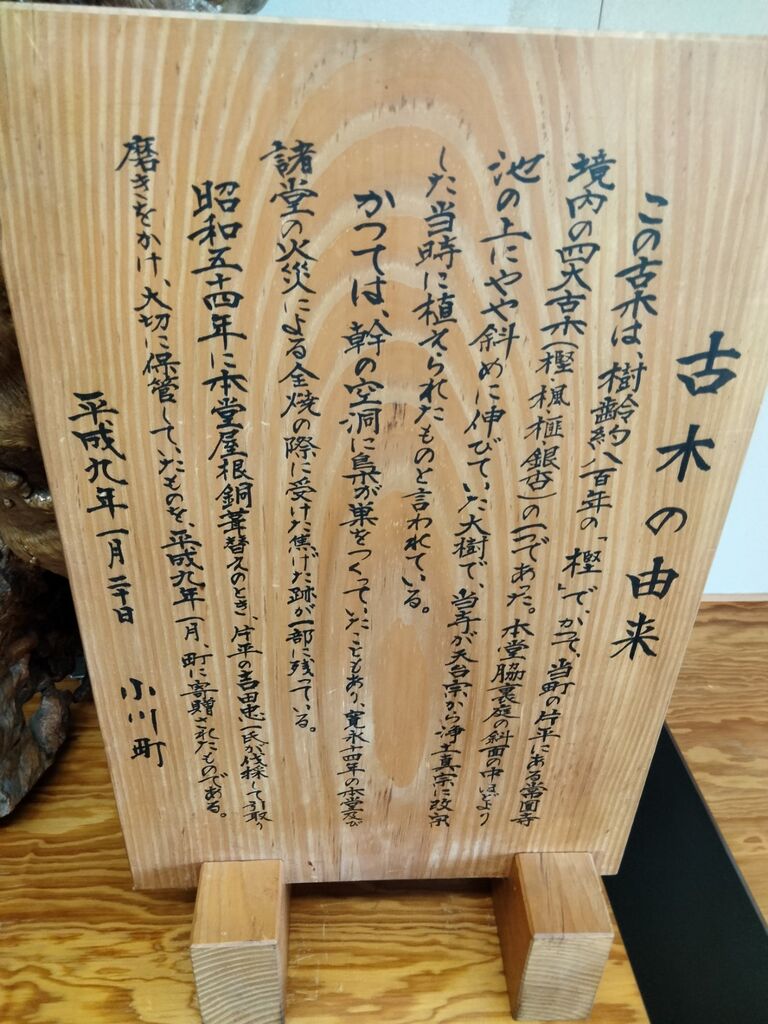 古木の由来
この古木は、樹齢約八百年の「樫」で、かつて、当町の片平にある常圓寺
境内の四大古木(樫・楓・榧・銀杏)の一つであった。本堂脇裏庭の斜面の中ほどより
池の上にやや斜めに伸びていた大樹で、当寺が天台宗から浄土真宗に改宗
した当時に植えられたものと言われている。
かつては、幹の空洞に梟が巣をつくっていたこともあり、寛永十四年の本堂及び
諸堂の火災による全焼の際に受けた焦げた跡が一部に残っている。
昭和五十四年に本堂屋根銅葺替えのとき、片平の吉田忠一氏が伐採して引取り
磨きをかけ、大切に保管していたものを、平成九年一月、町に寄贈されたものである。
平成九年一月二十日 小川町